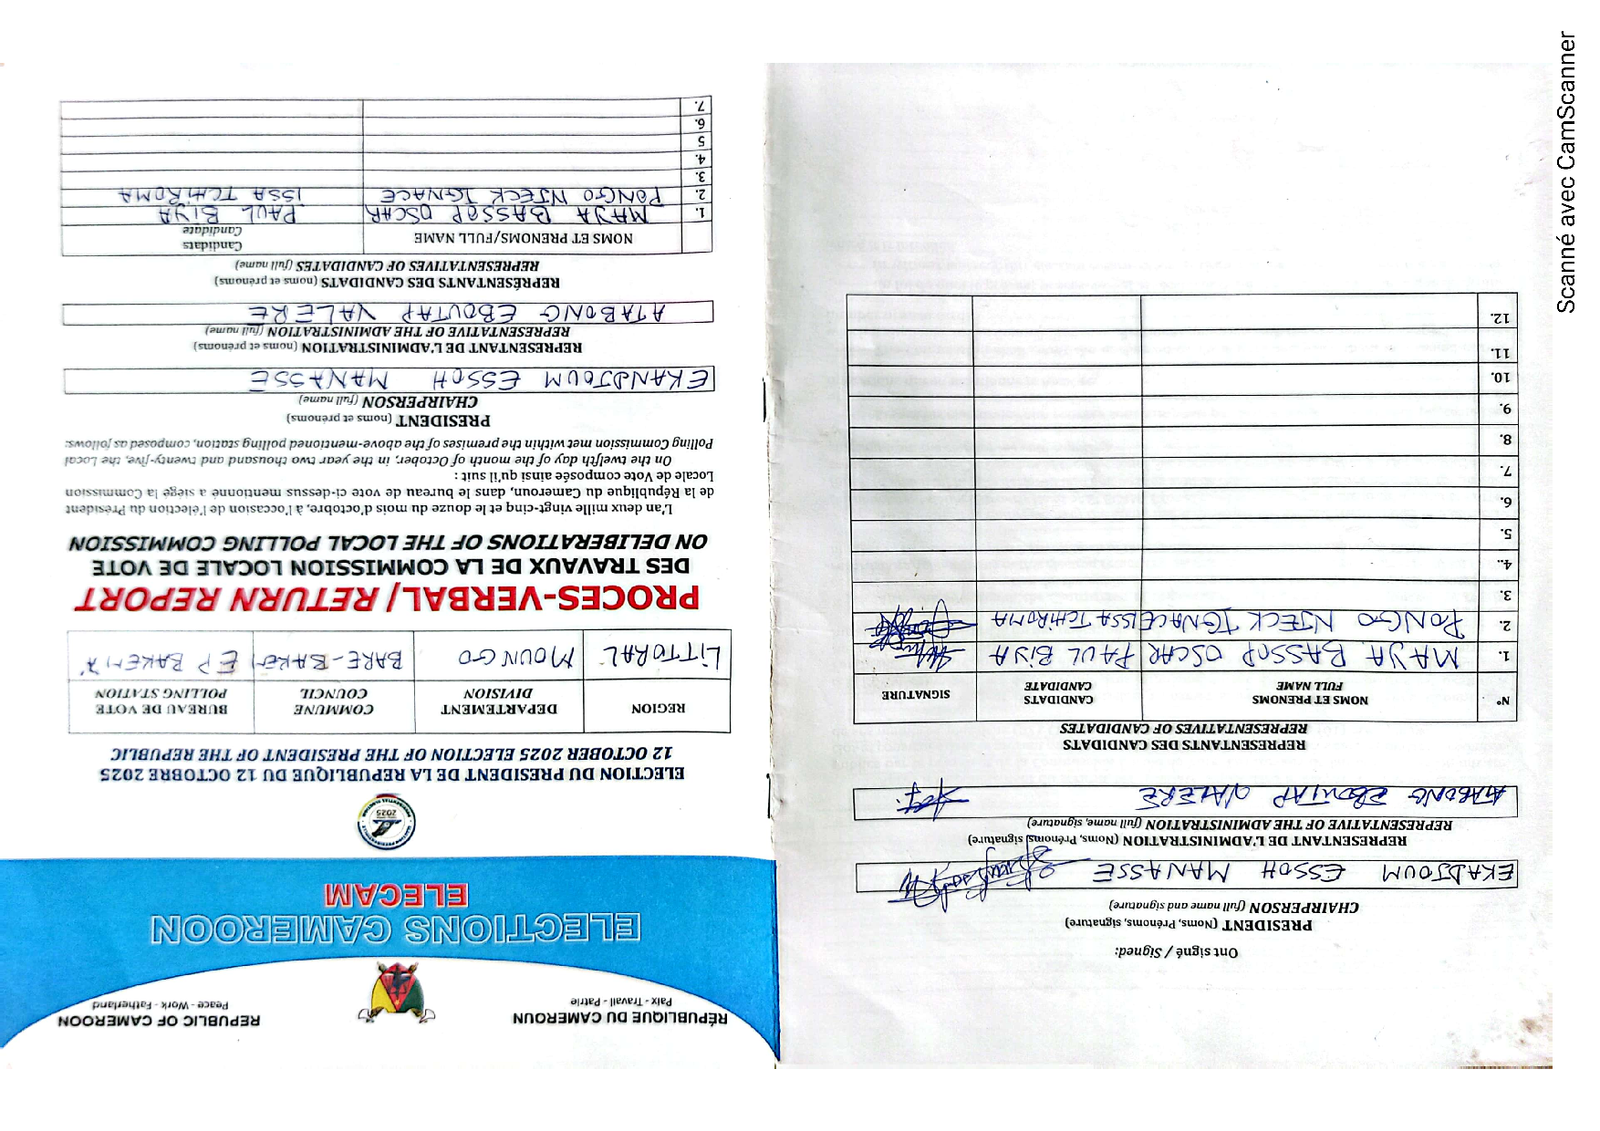 RÉPUBLIQUE DU CAMEROUN
Paix - Travail - Patrie
REPUBLIC OF CAMEROON
Peace - Work - Fatherland
ELECTIONS CAMEROON
ELECAM
2025
ELECTION DU PRESIDENT DE LA REPUBLIQUE DU 12 OCTOBRE 2025
12 OCTOBER 2025 ELECTION OF THE PRESIDENT OF THE REPUBLIC
REGION DEPARTEMENT COMMUNE BUREAU DE VOTE
DIVISION COUNCIL POLLING STATION
LITTORAL MOUNGO BARE-BAKEM EP BAKEM
PROCES-VERBAL/ RETURN REPORT
DES TRAVAUX DE LA COMMISSION LOCALE DE VOTE
ON DELIBERATIONS OF THE LOCAL POLLING COMMISSION
L'an deux mille vingt-cinq et le douze du mois d'octobre, à l'occasion de l'élection du Président
de la République du Cameroun, dans le bureau de vote ci-dessus mentionné a siégé la Commission
Locale de Vote composée ainsi qu'il suit :
On the twelfth day of the month of October, in the year two thousand and twenty-five, the Local
Polling Commission met within the premises of the above-mentioned polling station, composed as follows:
PRESIDENT (noms et prénoms)
CHAIRPERSON (full name)
EKANDJOUM ESSOH MANASSE
REPRESENTANT DE L'ADMINISTRATION (noms et prénoms)
REPRESENTATIVE OF THE ADMINISTRATION (full name)
ATABONG EBOUTAP VALERE
REPRÉSENTANTS DES CANDIDATS (noms et prénoms)
REPRESENTATIVES OF CANDIDATES (full name)
NOMS ET PRENOMS/FULL NAME Candidats
Candidate
1. MAJA BASSOP OSCAR PAUL BIYA
2. PONGO NJECK IGNACE ISSA TCHIROMA
3.
4.
5
6.
7.
Ont signé / Signed:
PRESIDENT (Noms, Prénoms, signature)
CHAIRPERSON (full name and signature)
EKADJOUM ESSOH MANASSE
REPRESENTANT DE L'ADMINISTRATION (Noms, Prénoms, signature)
REPRESENTATIVE OF THE ADMINISTRATION (full name, signature)
ATABONG EBOUTAP VALERE
REPRESENTANTS DES CANDIDATS
REPRESENTATIVES OF CANDIDATES
N° NOMS ET PRENOMS CANDIDATS SIGNATURE
FULL NAME CANDIDATE
1. MAJA BASSOP OSCAR PAUL BIYA
2. PONGO NJECK IGNACE ISSA TCHIROMA
3.
4..
5.
6.
7.
8.
9.
10.
11.
12.
Scanné avec CamScanner